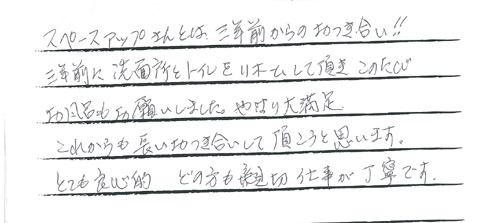 スペースアップさんとは、三年前からのお付き合い!!
三年前に洗面所とトイレをリホームして頂き このたび
お風呂もお願いしました。やはり大満足
これからも長いお付き合いして頂こうと思います。
とても良心的 どの方も親切 仕事が丁寧です。